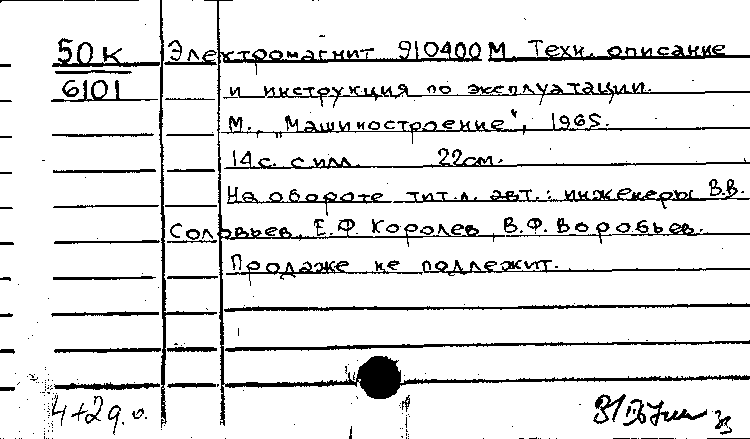 50к
6101
Электромагнит 910400М. Техн. описание
и инструкция по эксплуатации.
М., „Машиностроение", 1965.
14с. с илл. 22см.
На обороте тит.л. авт.: инженеры В.В.
Соловьев, Е.Ф. Королев, В.Ф. Воробьев.
Продаже не подлежит.
4+2д.о.